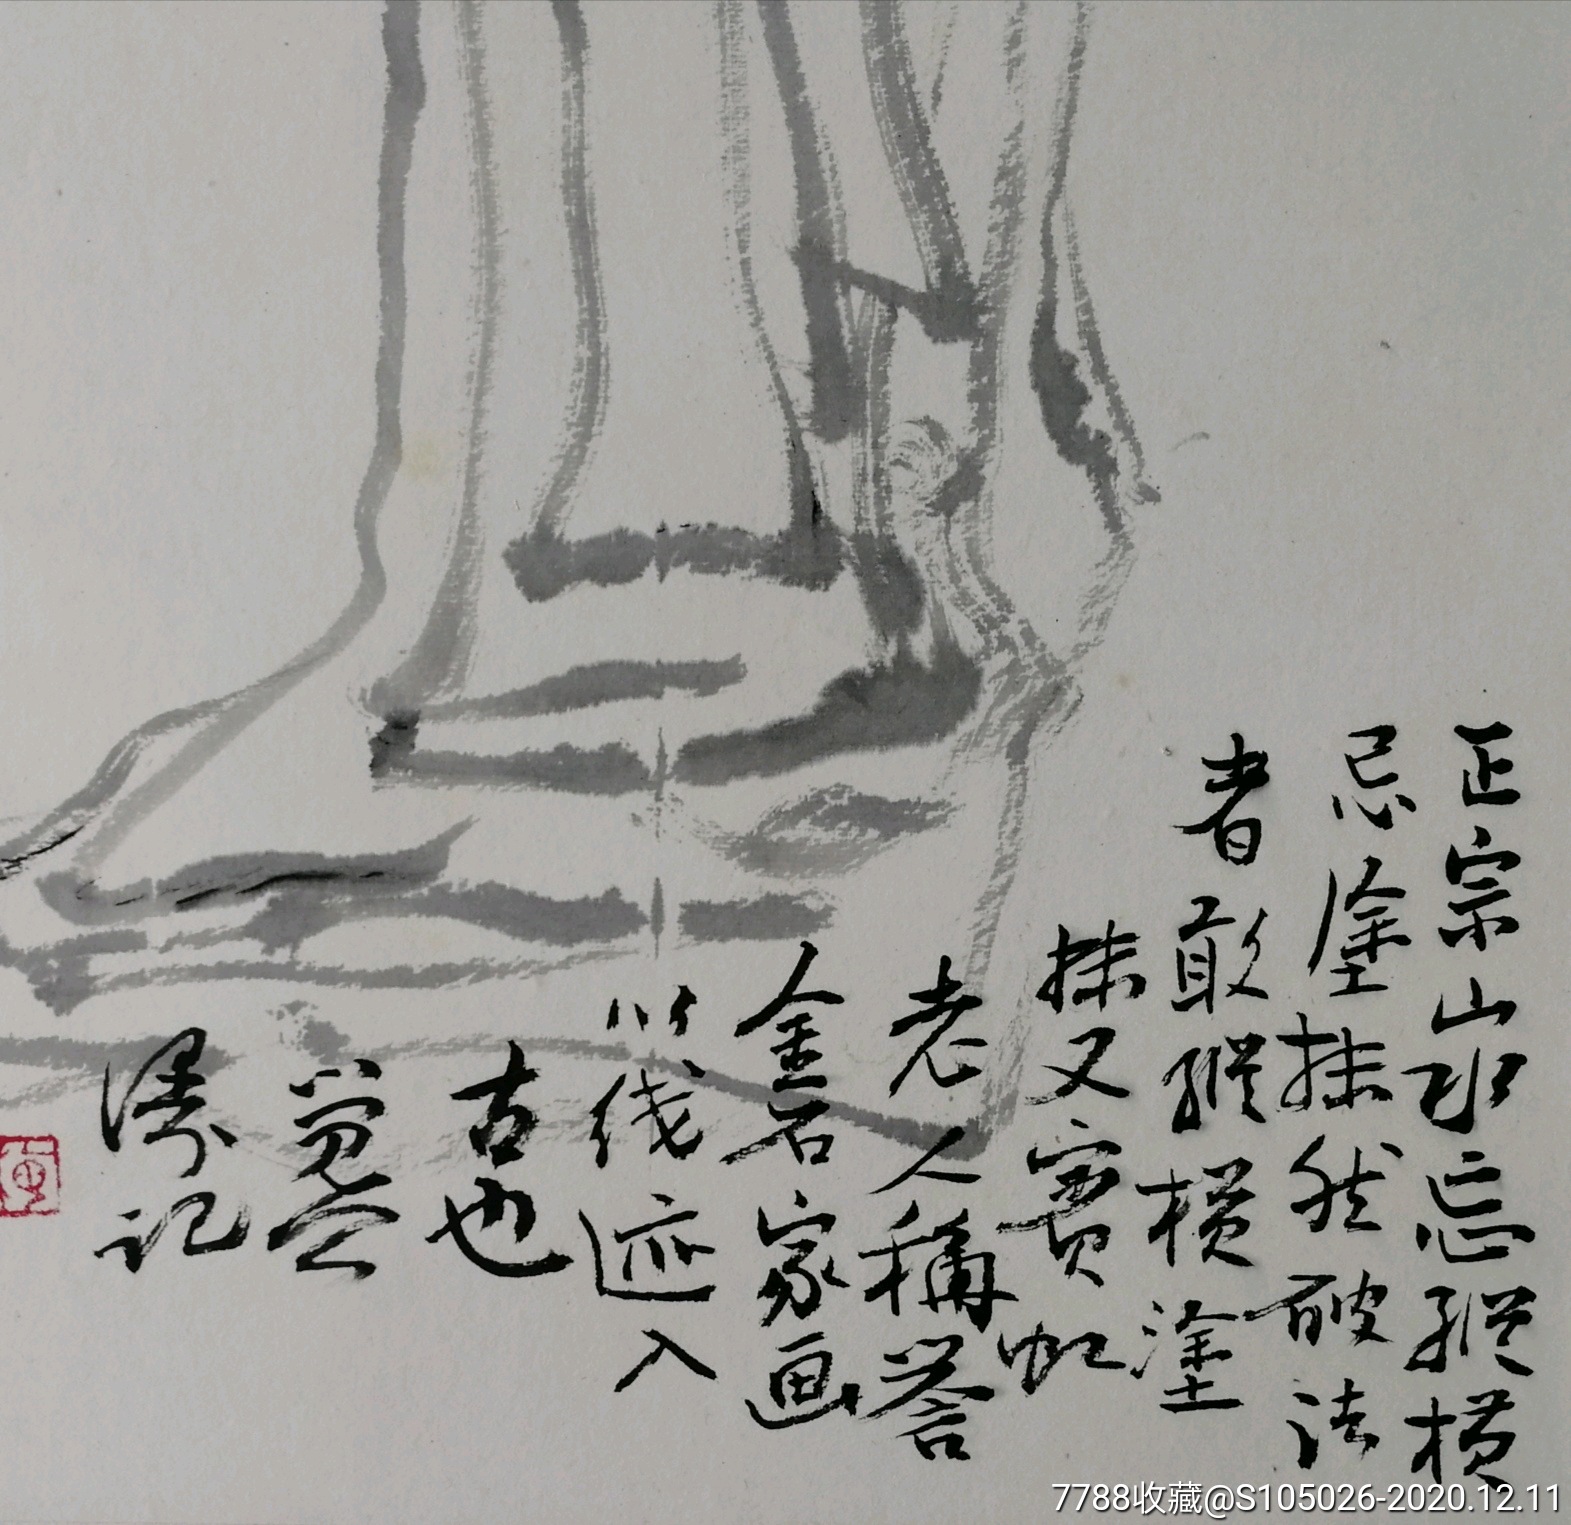 正宗山水忘縱横
忌塗抹然破法
者敢縱横塗
抹又賓虹
老人稱譽
金石家画
以线迹入
古也
覺公
濤記
7788收藏@S105026-2020.12.11